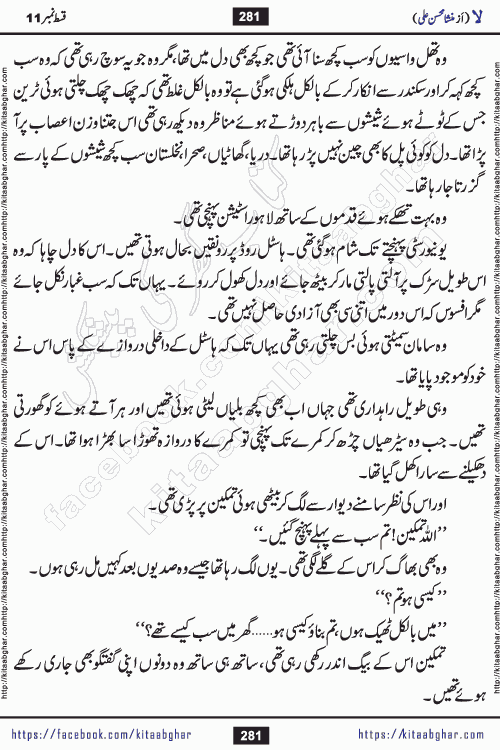 لا (از منشا محسن علی)
281
قسط نمبر 11
وہ تھل واسیوں کو سب کچھ سنا آئی تھی جو کچھ بھی دل میں تھا، مگر وہ جو یہ سوچ رہی تھی کہ وہ سب
کچھ کہہ کر اور سکندر سے انکار کر کے بالکل ہلکی ہو گئی ہے تو وہ بالکل غلط تھی کہ چھک چھک چلتی ہوئی ٹرین
جس کے ٹوٹے ہوئے شیشوں سے باہر دوڑتے ہوئے مناظر وہ دیکھ رہی تھی اس جتنا وزن اعصاب پر آ
پڑا تھا۔ دل کو کوئی پل کا بھی چین نہیں پڑ رہا تھا۔ دریا، گھاٹیاں، صحرا، نخلستان سب کچھ شیشوں کے پار سے
گزرتا جا رہا تھا۔
وہ بہت تھکے ہوئے قدموں کے ساتھ لاہور اسٹیشن پہنچی تھی۔
یونیورسٹی پہنچتے تک شام ہو گئی تھی۔ ہاسٹل روڈ پر رونقیں بحال ہوتی تھیں۔ اس کا دل چاہا کہ وہ
اس طویل سڑک پر آلتی پالتی مار کر بیٹھ جائے اور دل کھول کر روئے۔ یہاں تک کہ سب غبار نکل جائے
مگر افسوس کہ اس دور میں اتنی سی بھی آزادی حاصل نہیں تھی۔
وہ سامان سمیٹتی ہوئی بس چلتی رہی تھی یہاں تک کہ ہاسٹل کے داخلی دروازے کے پاس اس نے
خود کو موجود پایا تھا۔
وہی طویل راہداری تھی جہاں اب بھی کچھ بلیاں لیٹی ہوئی تھیں اور ہر آتے ہوئے کو گھورتی
تھیں۔ جب وہ سیڑھیاں چڑھ کر کمرے تک پہنچی تو کمرے کا دروازہ تھوڑا سا بھڑا ہوا تھا۔ اس کے
دھکیلنے سے سارا کھل گیا تھا۔
اور اس کی نظر سامنے دیوار سے لگ کر بیٹھی ہوئی تمکین پر پڑی تھی۔
’’اللہ تمکین! تم سب سے پہلے پہنچ گئیں۔‘‘
وہ بھی بھاگ کر اس کے گلے لگی تھی۔ یوں لگ رہا تھا جیسے وہ صدیوں بعد کہیں مل رہی ہوں۔
’’کیسی ہو تم؟‘‘
’’میں بالکل ٹھیک ہوں، تم بتاؤ کیسی ہو......گھر میں سب کیسے تھے؟‘‘
تمکین اس کے بیگ اندر رکھی رہی تھی، ساتھ ہی ساتھ وہ دونوں اپنی گفتگو بھی جاری رکھے
ہوئے تھیں۔
https://facebook.com/kitaabghar
281
https://kitaabghar.com